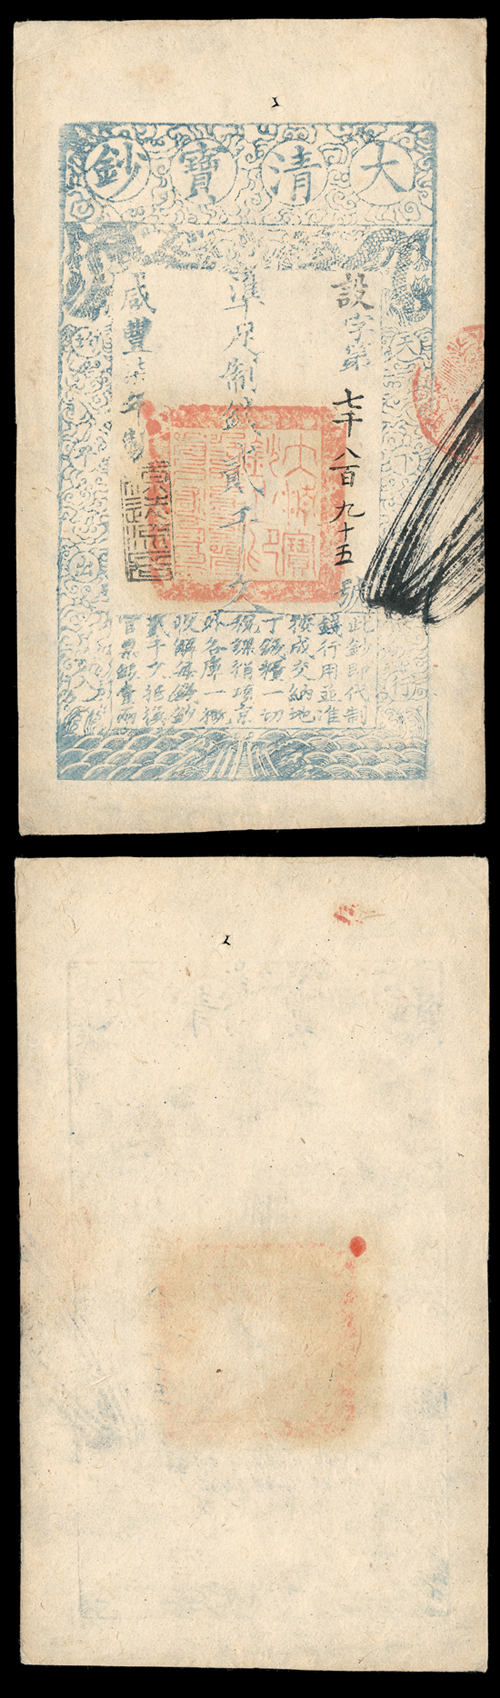 大清寶鈔
天下通行
設字第七千八百九十五號
準足制錢貳千文
咸豐柒年製
均平出入
此鈔即代制
錢行用並准
按成交納地
丁錢糧一切
稅課捐項京
外各庫一概
收解每錢鈔
貳千文抵換
官票銀壹兩